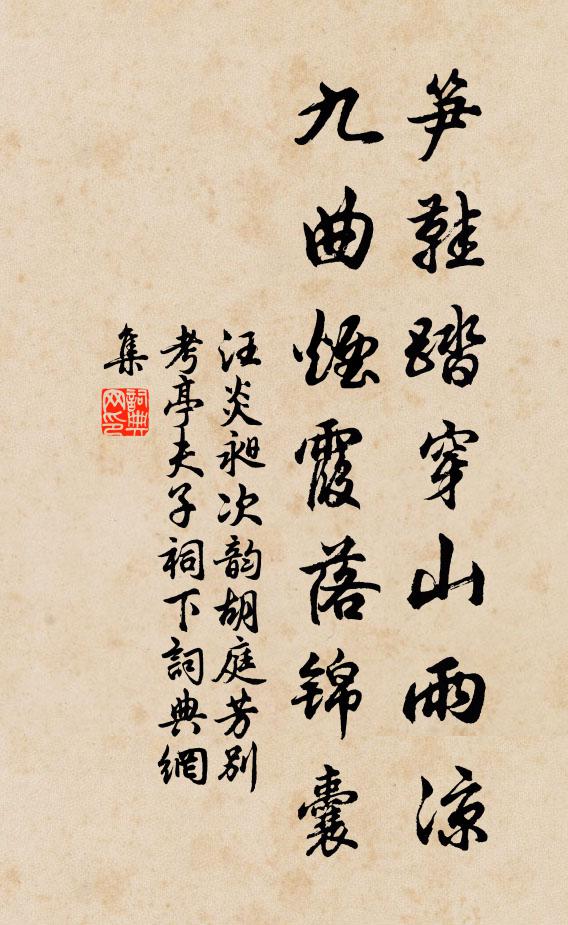 笋鞋踏穿山雨凉
九曲煙霞落锦囊
汪炎昶次韵胡庭芳别
考亭夫子祠下詞典網
集
詞典
网印